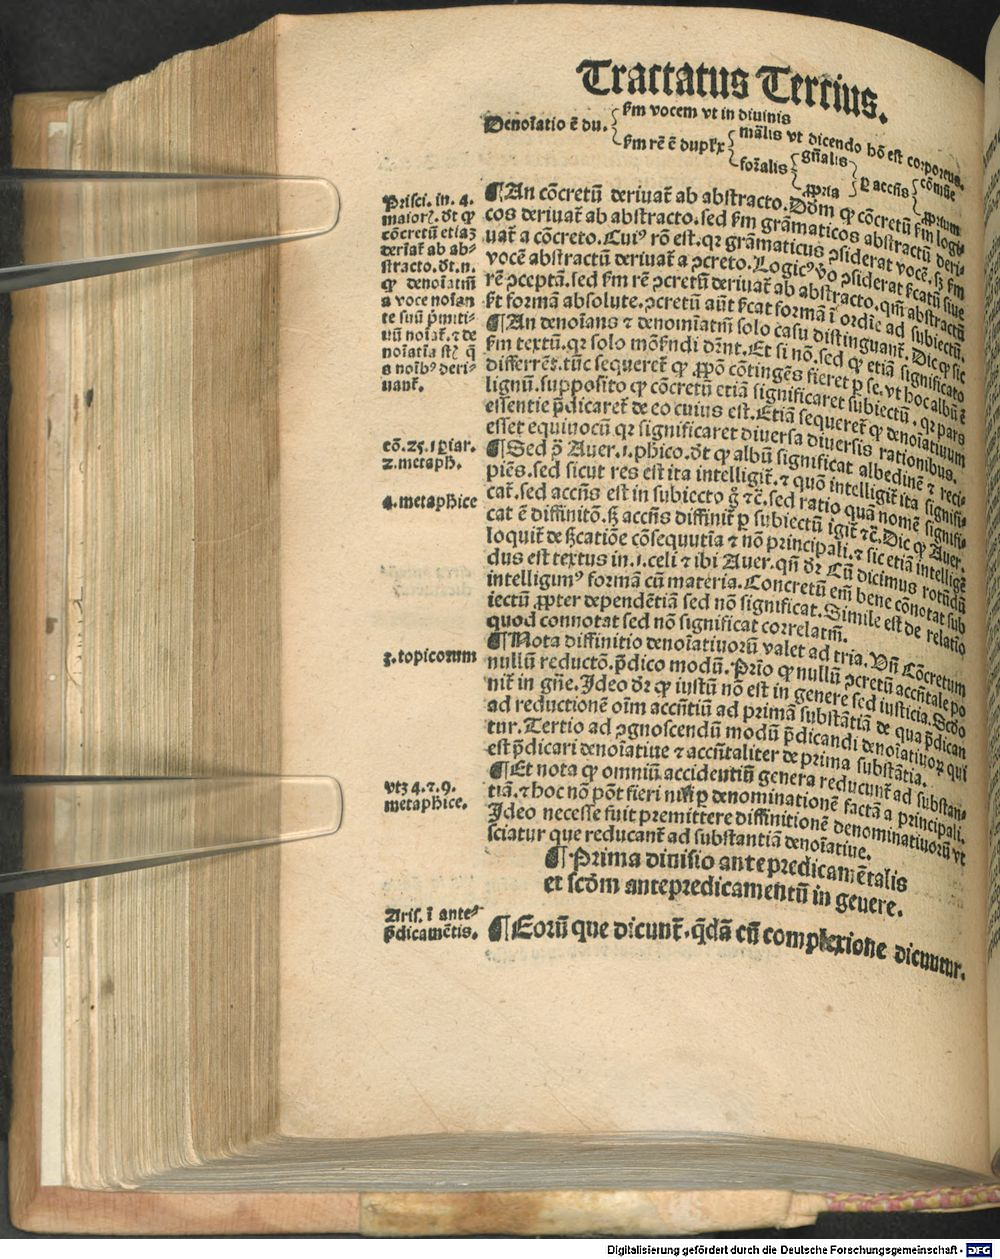 Tractatus Tertius.
Denoĩatio ē du. { ẜm vocem vt in diuinis
ẜm rē ē duplex { mãlis vt dicendo hõ est corporeus.
formalis { gñalis
ꝓpria } ⁊ accñs { cõmune
ꝓprium
Prisci. in. 4.
maioꝝ. dt ꝙ
cõcretũ etiaꝫ
deriaꞇ ab ab-
stracto. dt. n.
ꝙ denoĩatiũ
a voce noĩan
te suũ pͥmiti-
uũ noĩaꞇ. ⁊ de
noĩatĩa st̃ q̃
a noĩbꝰ deri-
uanꞇ.
¶ An cõcretũ deriuaꞇ ab abstracto. Dõm ꝙ cõcretũ ẜm logi-
cos deriuaꞇ ab abstracto. sed ẜm grãmaticos abstractũ deri-
uaꞇ a cõcreto. Cuiꝰ rõ est. qꝛ grãmaticus ꝯsiderat vocē. sꝫ ẜm
vocē abstractũ deriuaꞇ a ꝯcreto. Logicꝰ ṽo ꝯsiderat ẜcatũ siue
rē ꝯceptã. sed ẜm rē ꝯcretũ deriuaꞇ ab abstracto. qm̃ abstractũ
ẜt formã absolute. ꝯcretũ aũt ẜcat formã ĩ ordĩe ad subiectũ.
¶ An denoĩans ⁊ denomĩatm̃ solo casu distinguanꞇ. Dic ꝙ sic
ẜm textũ. qꝛ solo mõ ẜndi dr̃nt. Et si nõ. sed ꝙ etiã significato
differrēt. tũc sequereꞇ ꝙ ꝓpõ cõtingēs fieret ꝑ se. vt hoc albũ ē
lignũ. supposito ꝙ cõcretũ etiã significaret subiectũ. qꝛ pars
essentie p̃dicareꞇ de eo cuius est. Etiã sequereꞇ ꝙ denoĩatiuum
esset equiuocũ qꝛ significaret diuersa diuersis rationibus.
cõ. 25. 1 ꝑiar.
2. metaph̃.
4. metaph̃ice
¶ Sed ↄ̃ Auer. 1. ph̃ico. dt ꝙ albũ significat albedinē ⁊ reci-
piēs. sed sicut res est ita intelligiꞇ. ⁊ quõ intelligiꞇ ita signifi-
caꞇ. sed accñs est in subiecto g̊ ⁊c̃. sed ratio quã nomē signifi-
cat ē diffinitõ. sꝫ accñs diffiniꞇ ꝑ subiectũ igiꞇ ⁊c̃. Dic ꝙ Auer.
loquiꞇ de ẜcatiõe cõsequutĩa ⁊ nõ principali. ⁊ sic etiã intelligē
dus est textus in. 1. celi ⁊ ibi Auer. qñ dr̃ Cũ dicimus rotũdũ
intelligimꝰ formã cũ materia. Concretũ em̃ bene cõnotat sub
iectũ ꝓpter dependētiã sed nõ significat. Simile est de relatio
quod connotat sed nõ significat correlatm̃.
3. topicorum
¶ Nota diffinitio denoĩatiuorũ valet ad tria. Vñ Cõcretum
nullũ reductõ. p̃dico modũ. Prĩo ꝙ nullũ ꝯcretũ accñtale po
niꞇ in gñe. Ideo dr̃ ꝙ iustũ nõ est in genere sed iusticia. Scðo
ad reductionē oĩm accñtiũ ad primã substãtiã de qua p̃dican
tur. Tertio ad ꝯgnoscendũ modũ p̃dicandi denoĩatiuoꝝ qui
est p̃dicari denoĩatiue ⁊ accñtaliter de prima substãtia.
vtꝫ 4. ⁊. 9.
metaph̃ice.
¶ Et nota ꝙ omniũ accidentiũ genera reducunꞇ ad substan-
tiã. ⁊ hoc nõ põt fieri nisi ꝑ denominationē factã a principali.
Ideo necesse fuit premittere diffinitionē denominatiuorũ vt
sciatur que reducanꞇ ad substantiã denoĩatiue.
¶ Prima diuisio antepredicamētalis
et scðm antepredicamentũ in genere.
Aris. ĩ ante-
p̃dicamētis.
¶ Eorũ que dicunꞇ. q̃dã cũ complexione dicuntur.
Digitalisierung gefördert durch die Deutsche Forschungsgemeinschaft - DFG